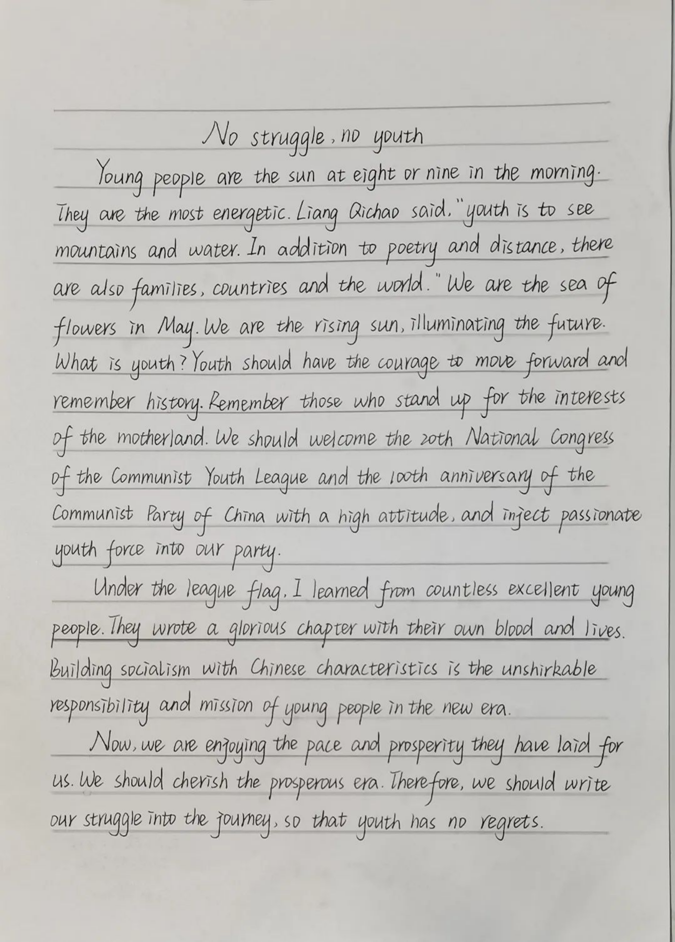 No struggle, no youth
Young people are the sun at eight or nine in the morning.
They are the most energetic. Liang Qichao said, "youth is to see
mountains and water. In addition to poetry and distance, there
are also families, countries and the world." We are the sea of
flowers in May. We are the rising sun, illuminating the future.
What is youth? Youth should have the courage to move forward and
remember history. Remember those who stand up for the interests
of the motherland. We should welcome the 20th National Congress
of the Communist Youth League and the 100th anniversary of the
Communist Party of China with a high attitude, and inject passionate
youth force into our party.
Under the league flag, I learned from countless excellent young
people. They wrote a glorious chapter with their own blood and lives.
Building socialism with Chinese characteristics is the unshirkable
responsibility and mission of young people in the new era.
Now, we are enjoying the pace and prosperity they have laid for
us. We should cherish the prosperous era. Therefore, we should write
our struggle into the journey, so that youth has no regrets.